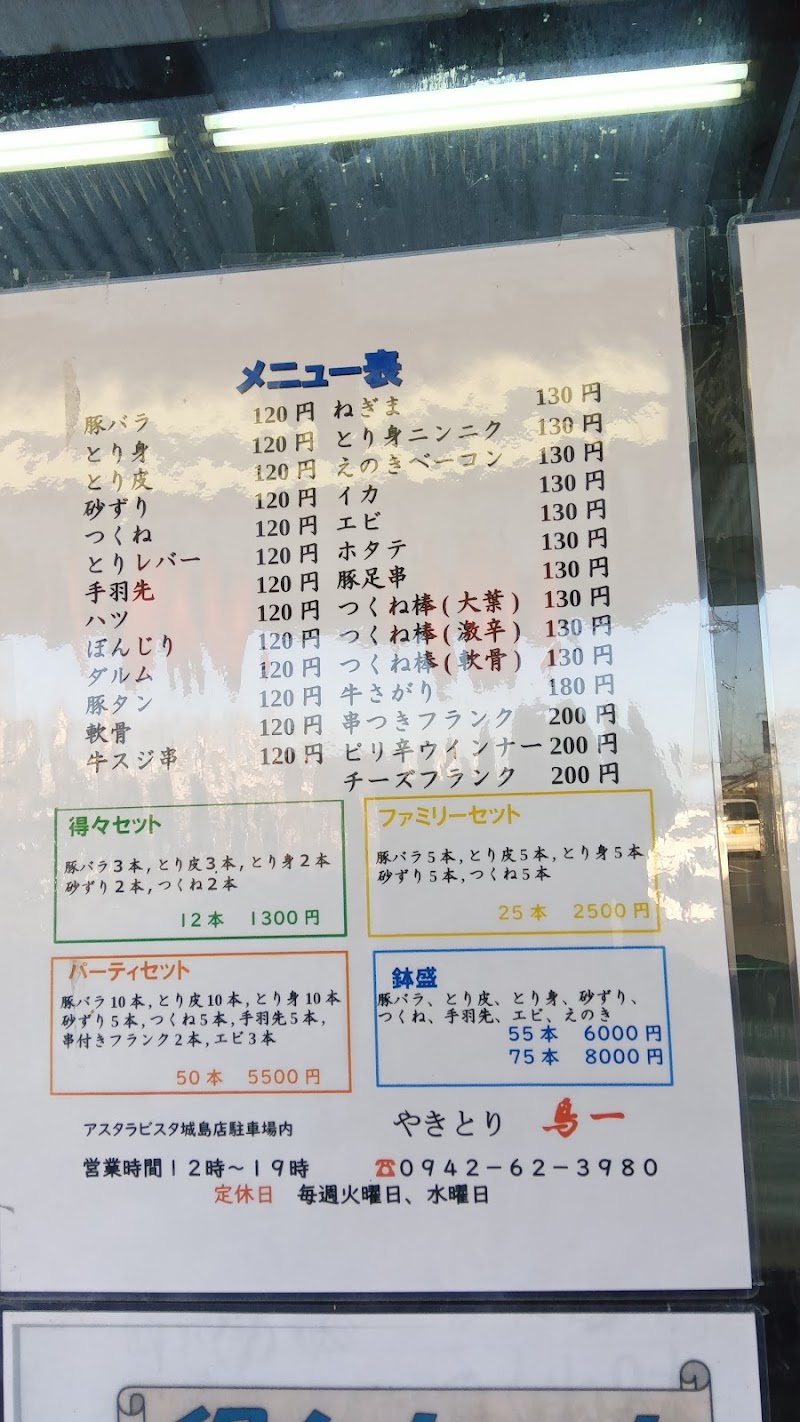 メニュー表
豚バラ 120円
とり身 120円
とり皮 120円
砂ずり 120円
つくね 120円
とりレバー 120円
手羽先 120円
ハツ 120円
ぼんじり 120円
ダルム 120円
豚タン 120円
軟骨 120円
牛スジ串 120円
ねぎま 130円
とり身ニンニク 130円
えのきベーコン 130円
イカ 130円
エビ 130円
ホタテ 130円
豚足串 130円
つくね棒(大葉) 130円
つくね棒(激辛) 130円
つくね棒(軟骨) 130円
牛さがり 180円
串つきフランク 200円
ピリ辛ウインナー 200円
チーズフランク 200円
得々セット
豚バラ3本,とり皮3本,とり身2本
砂ずり2本,つくね2本
12本 1300円
ファミリーセット
豚バラ5本,とり皮5本,とり身5本
砂ずり5本,つくね5本
25本 2500円
パーティセット
豚バラ10本,とり皮10本,とり身10本
砂ずり5本,つくね5本,手羽先5本,
串付きフランク2本,エビ3本
50本 5500円
鉢盛
豚バラ、とり皮、とり身、砂ずり、
つくね、手羽先、エビ、えのき
55本 6000円
75本 8000円
アスタラビスタ城島店駐車場内
やきとり 鳥一
営業時間12時〜19時 ☎0942-62-3980
定休日 毎週火曜日、水曜日